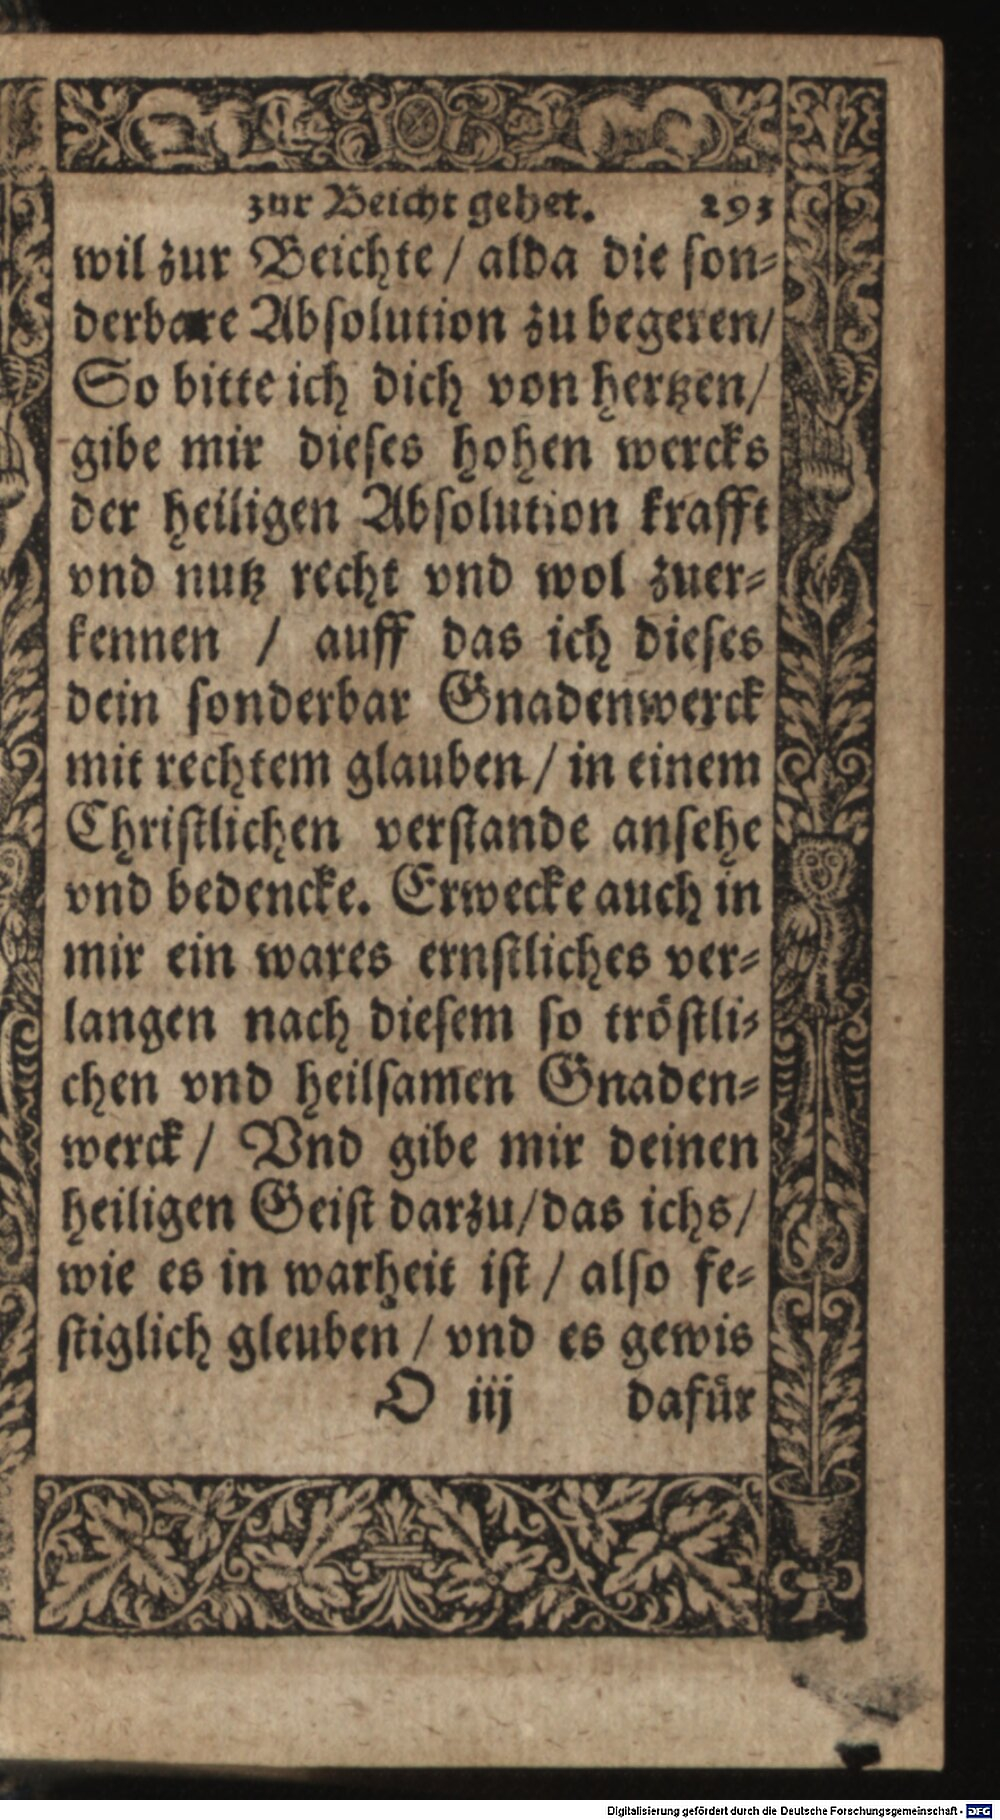 zur Beicht gehet. 293
wil zur Beichte / alda die ſon⸗
derbare Abſolution zu begeren/
So bitte ich dich von hertzen/
gibe mir dieſes hohen wercks
der heiligen Abſolution krafft
vnd nutz recht vnd wol zuer⸗
kennen / auff das ich dieſes
dein ſonderbar Gnadenwerck
mit rechtem glauben / in einem
Chriſtlichen verſtande anſehe
vnd bedencke. Erwecke auch in
mir ein wares ernſtliches ver⸗
langen nach dieſem ſo tröſtli⸗
chen vnd heilſamen Gnaden⸗
werck / Vnd gibe mir deinen
heiligen Geiſt darzu/das ichs/
wie es in warheit iſt / alſo fe⸗
ſtiglich gleuben / vnd es gewis
O iij dafür
Digitalisierung gefördert durch die Deutsche Forschungsgemeinschaft - DFG